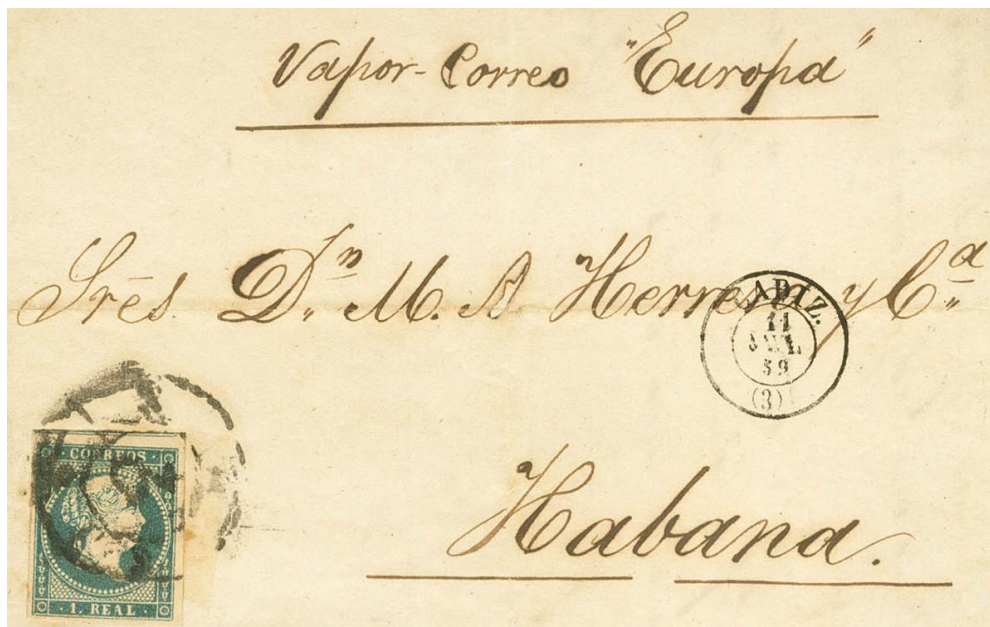 Vapor-Correo "Europa"
Srēs. Dn. M. A. Herrera y Ca.
CADIZ.
11
JUL
59
(3)
Habana.
CORREOS
1. REAL